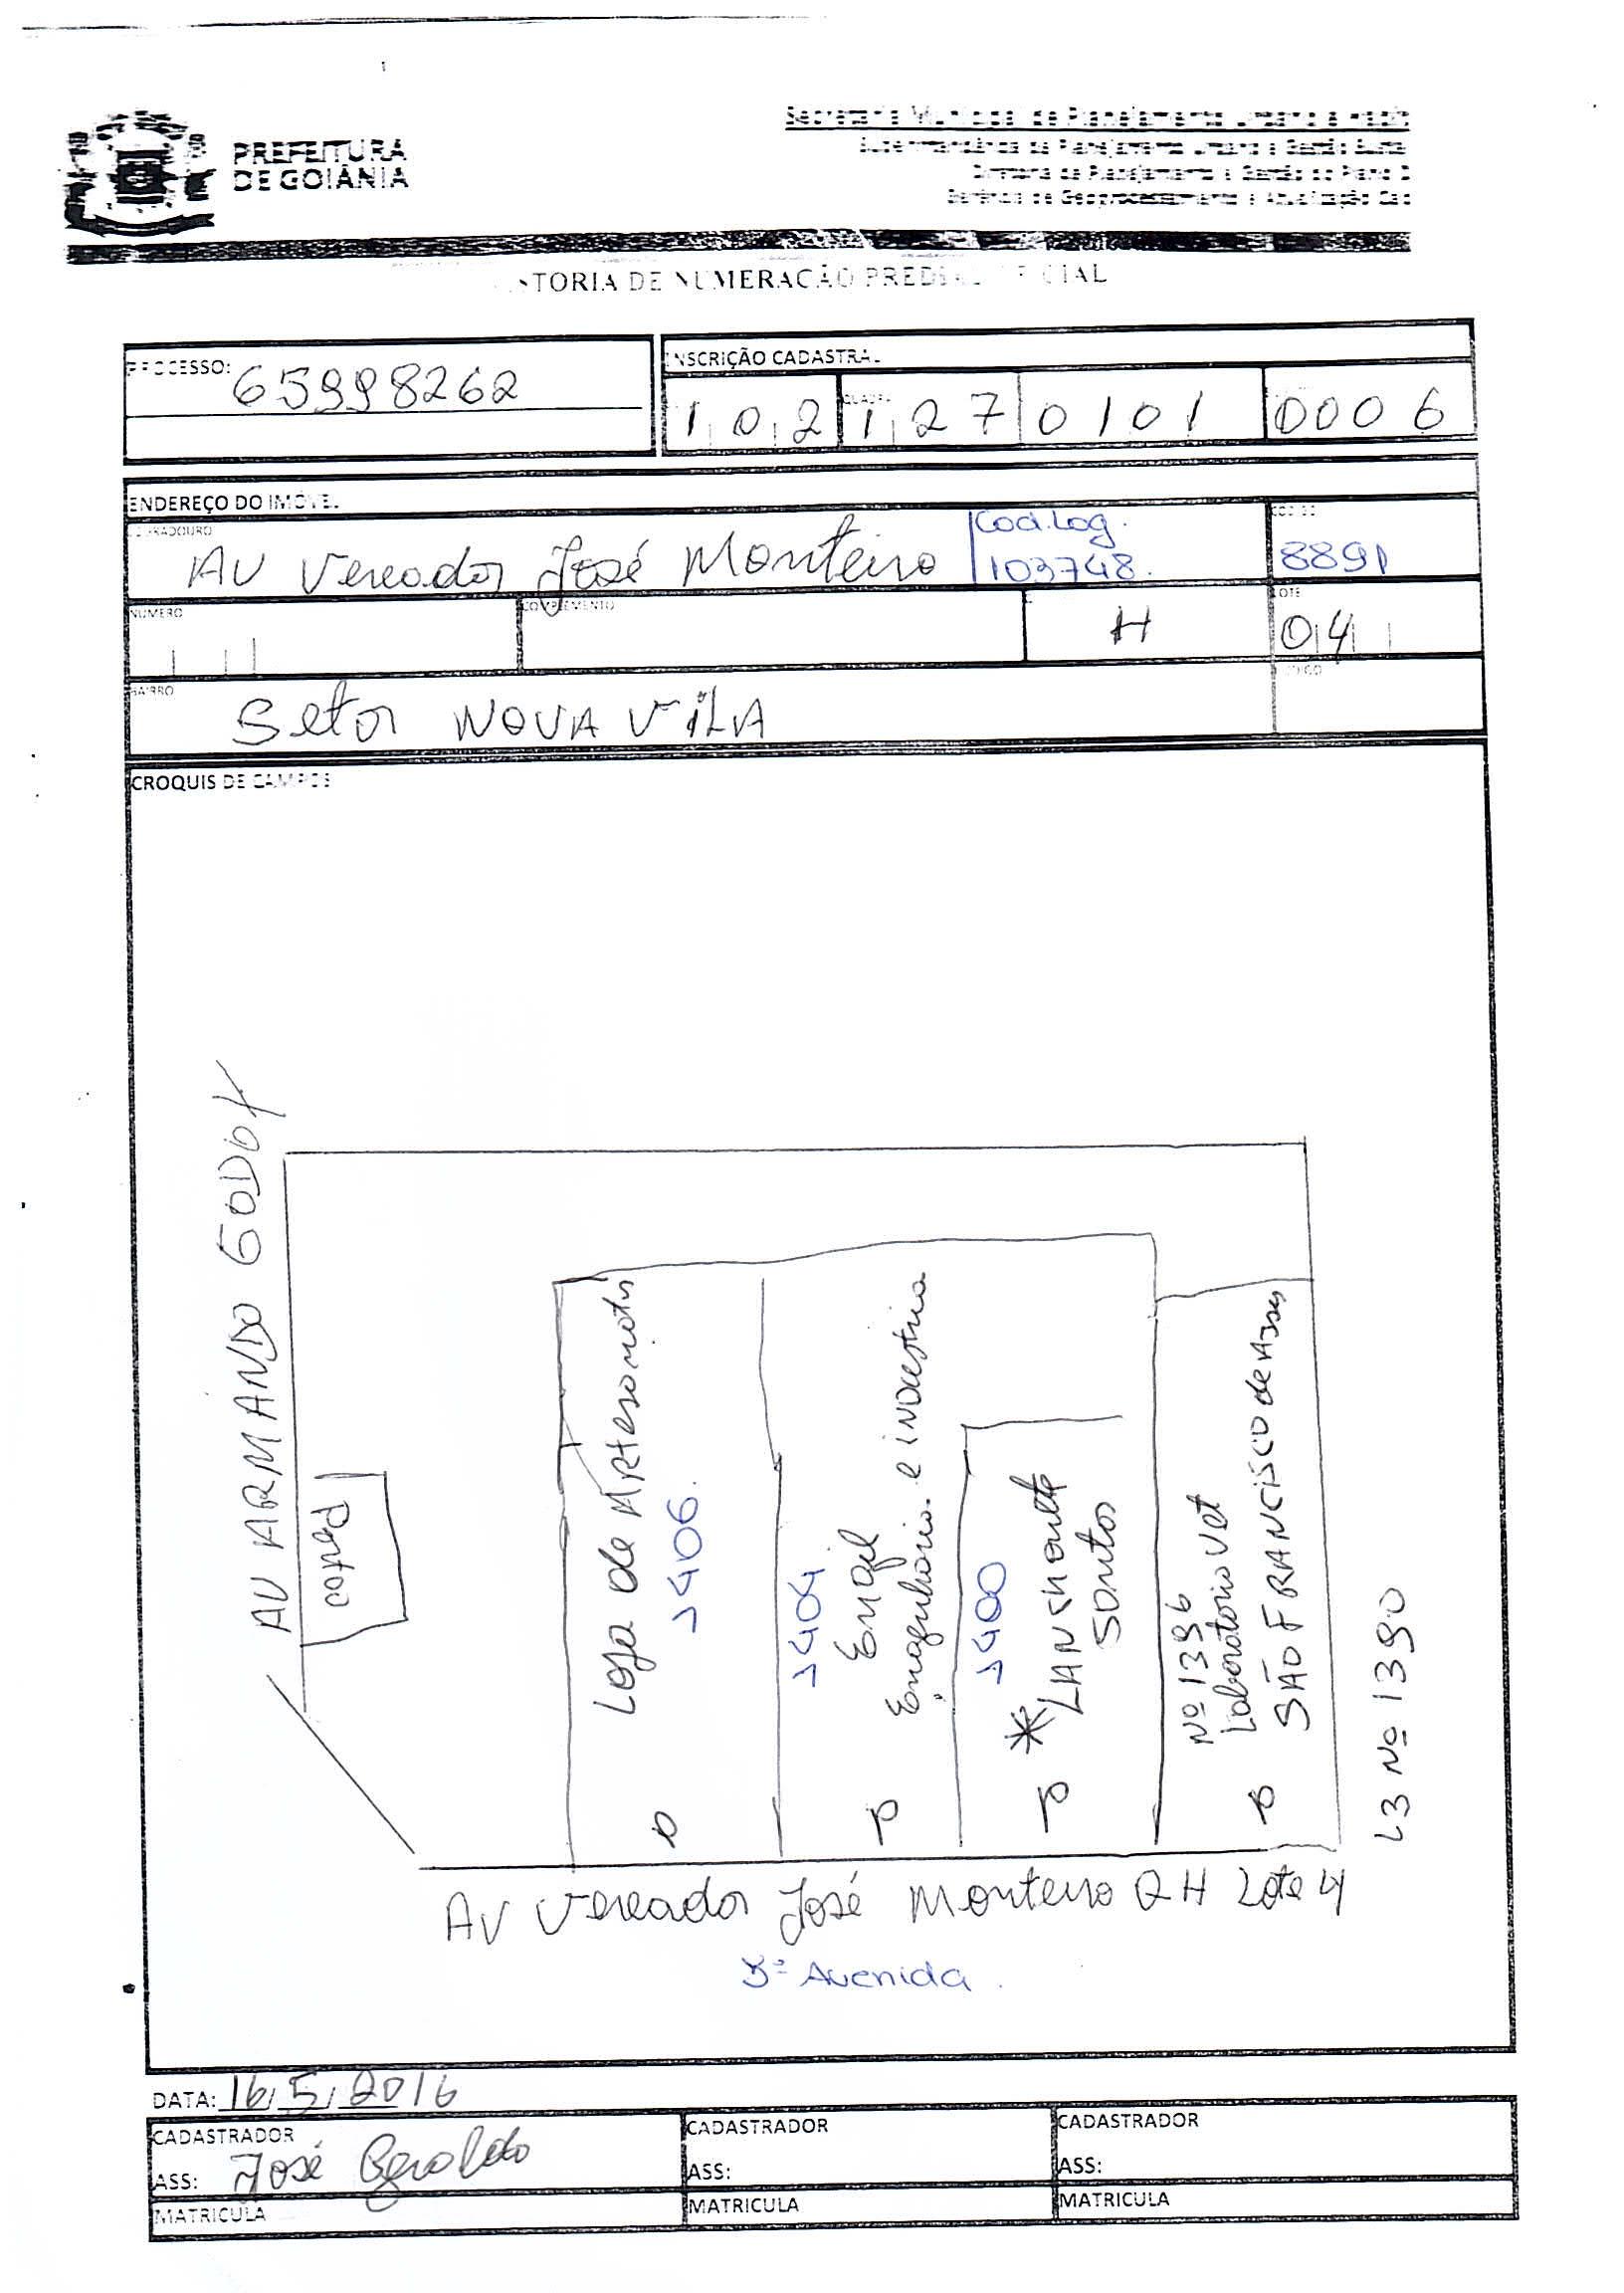 PREFEITURA
DE GOIÂNIA
Secretaria Municipal de Planejamento Urbano e
Superintendência de Planejamento Urbano e Gestão
Diretoria de Planejamento e Gestão do Plano D
Gerência de Geoprocessamento e Atualização Cad
STORIA DE NUMERAÇÃO PREDIAL OFICIAL
PROCESSO: 65998262
INSCRIÇÃO CADASTRAL
102 127 0101 0006
QUADRA
ENDEREÇO DO IMÓVEL
LOGRADOURO
AV Vereador José Monteiro
Cod. Log.
103748.
CÓDIGO
8891
NÚMERO
COMPLEMENTO
H
LOTE
04
BAIRRO
Setor NOVA ViLA
CÓDIGO
CROQUIS DE CAMPOS
AV ARMANDO GODOY
coned
Loja de ARtesanatos
1406.
1404
Engil
Engenharia e iNDustria
1400
* LANChonete
SANtos
Nº 1396
Laboratorio Vet
SÃO FRANCISCO de ASSis
L3 Nº 1390
AV Vereador José Monteiro QH Lote 4
5ª Avenida.
DATA: 16/5/2016
CADASTRADOR
ASS: José Geraldo
MATRICULA
CADASTRADOR
ASS:
MATRICULA
CADASTRADOR
ASS:
MATRICULA